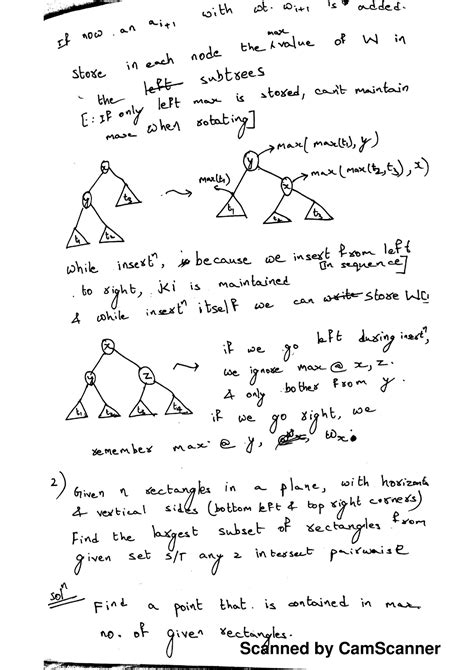 If now an a_{i+1} with wt. w_{i+1} is added.
Store in each node the max value of W in
the left subtrees
[∵ If only left max is stored, can't maintain
max when rotating]
x
y
t3
t1
t2
max(t1)
y
max(max(t1), y)
x
max(max(t2,t3), x)
t1
t2
t3
while insertⁿ, because we insert from left
to right, ji is maintained [in sequence]
& while insertⁿ itself we can write store W
x
y
z
t1
t2
t3
t4
if we go left during insertⁿ,
we ignore max @ x, z.
& only bother from y.
if we go right, we
remember max @ y, w_x.
2) Given n rectangles in a plane, with horizontal
& vertical sides (bottom left & top right corners)
Find the largest subset of rectangles from
given set s/T any 2 intersect pairwaise
solⁿ
Find a point that is contained in max
no. of given rectangles.
Scanned by CamScanner